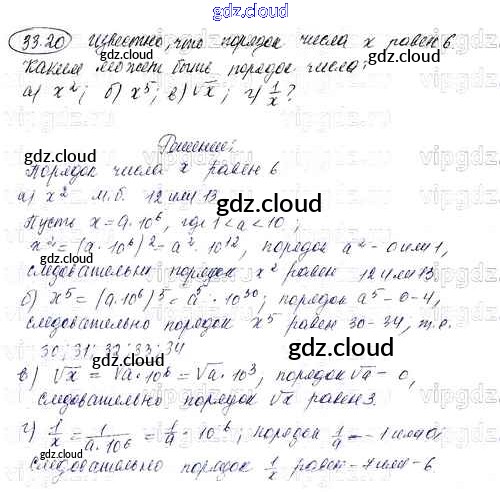 gdz.cloud
33.20 Известно, что порядок числа x равен 6.
Каким может быть порядок числа:
а) x²; б) x⁵; в) √x; г) 1/x?
Решение:
gdz.cloud
Порядок числа x равен 6
а) x² м.б. 12 или 13 gdz.cloud
Пусть x = a·10⁶, где 1<a<10;
x² = (a·10⁶)² = a²·10¹², порядок a² - 0 или 1,
следовательно порядок x² равен 12 или 13.
gdz.cloud
б) x⁵ = (a·10⁶)⁵ = a⁵·10³⁰; порядок a⁵ - 0-4,
следовательно порядок x⁵ равен 30-34, т.е.
30; 31; 32; 33; 34
gdz.cloud
в) √x = √a·10⁶ = √a·10³, порядок √a - 0,
следовательно порядок √x равен 3.
gdz.cloud
г) 1/x = 1/a·10⁶ = 1/a·10⁻⁶; порядок 1/a - -1 или 0
следовательно порядок 1/x равен -7 или -6.
gdz.cloud